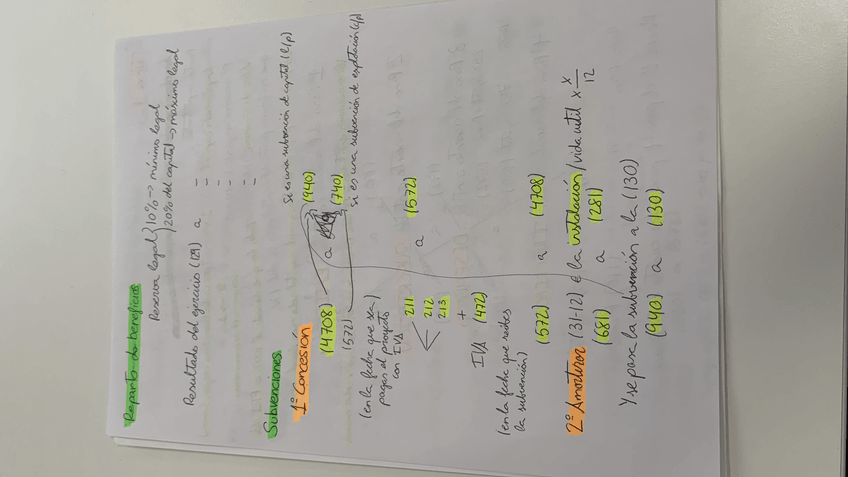 Reparto de beneficios
Reserva legal } 10% → mínimo legal
20% del capital → máximo legal
Resultado del ejercicio (129) a -
-
-
-
-
Subvenciones
1º Concesión
si es una subvención de capital (l/p)
(4708) a (940)
(572) (740)
si es una subvención de explotación (c/p)
(en la fecha que sea)
pagas el proyecto
con IVA
211
212 a (572)
213
+
IVA (472)
(en la fecha que recibes
la subvención)
(572) a (4708)
2º Amortizar (31-12) € la instalación / vida útil x x/12
(681) a (281)
Y se pasa la subvención a la (130)
(940) a (130)